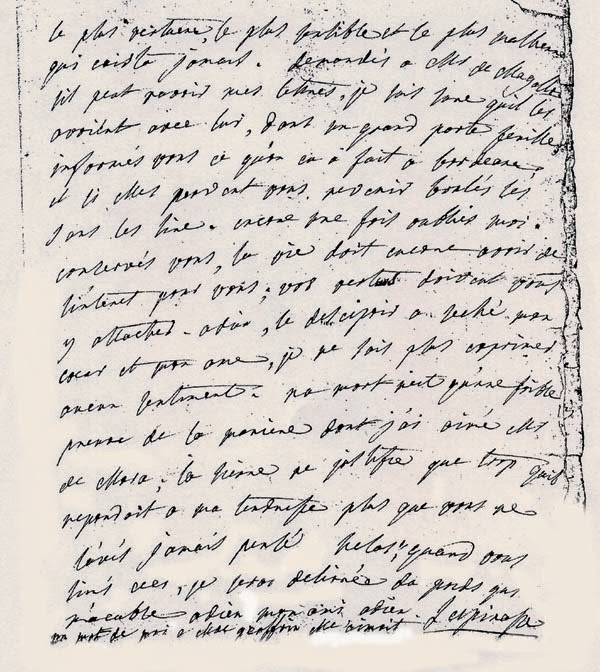 le plus vertueux, le plus sensible et le plus malheureux
qui exista jamais. demandés a Mr de Magallon
s'il peut ravoir mes lettres, je suis sure quil les
avoient avec lui, dans un grand porte feuille,
informés vous ce qu'on en à fait a bordeaux,
et si elles peuvent vous revenir brulés les
sans les lire. encore une fois oubliés moi.
conservés vous, la vie doit encore avoir de
l'interet pour vous, vos vertus doivent vous
y attacher. adieu, le desespoir a seché mon
cœur et mon ame, je ne sais plus exprimer
aucun sentiment. ma mort n'est qu'une foible
preuve de la maniere dont j'ai aimé Mr
de Mora, la sienne ne justifie que trop quil
repondoit a ma tendresse plus que vous ne
l'avés jamais pensé helas! quand vous
lirés ceci, je serai delivrée du poids qui
m'accable adieu mon ami adieu Lespinasse
un mot de moi a Mde geoffrin elle aimoit